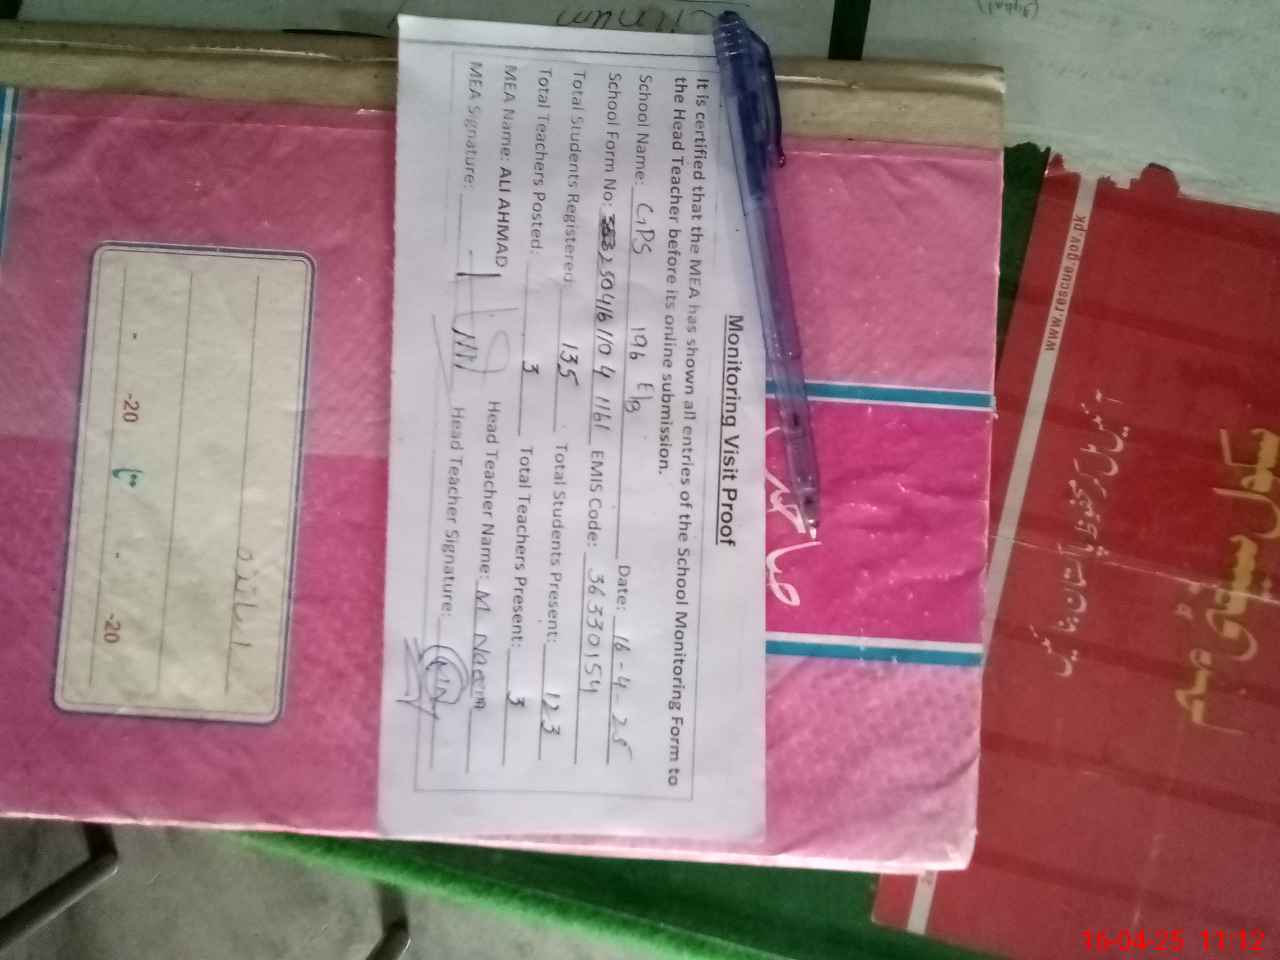 Monitoring Visit Proof
It is certified that the MEA has shown all entries of the School Monitoring Form to
the Head Teacher before its online submission.
School Name: GPS 196 E/B Date: 16-4-25
School Form No: 32504161104 1161 EMIS Code: 36330154
Total Students Registered: 135 Total Students Present: 123
Total Teachers Posted: 3 Total Teachers Present: 3
MEA Name: ALI AHMAD Head Teacher Name: M Naeem
MEA Signature: Head Teacher Signature:
اساتذہ
-20 تا -20
www.rescue.gov.pk
سکول سیفٹی
16-04-25 11:12